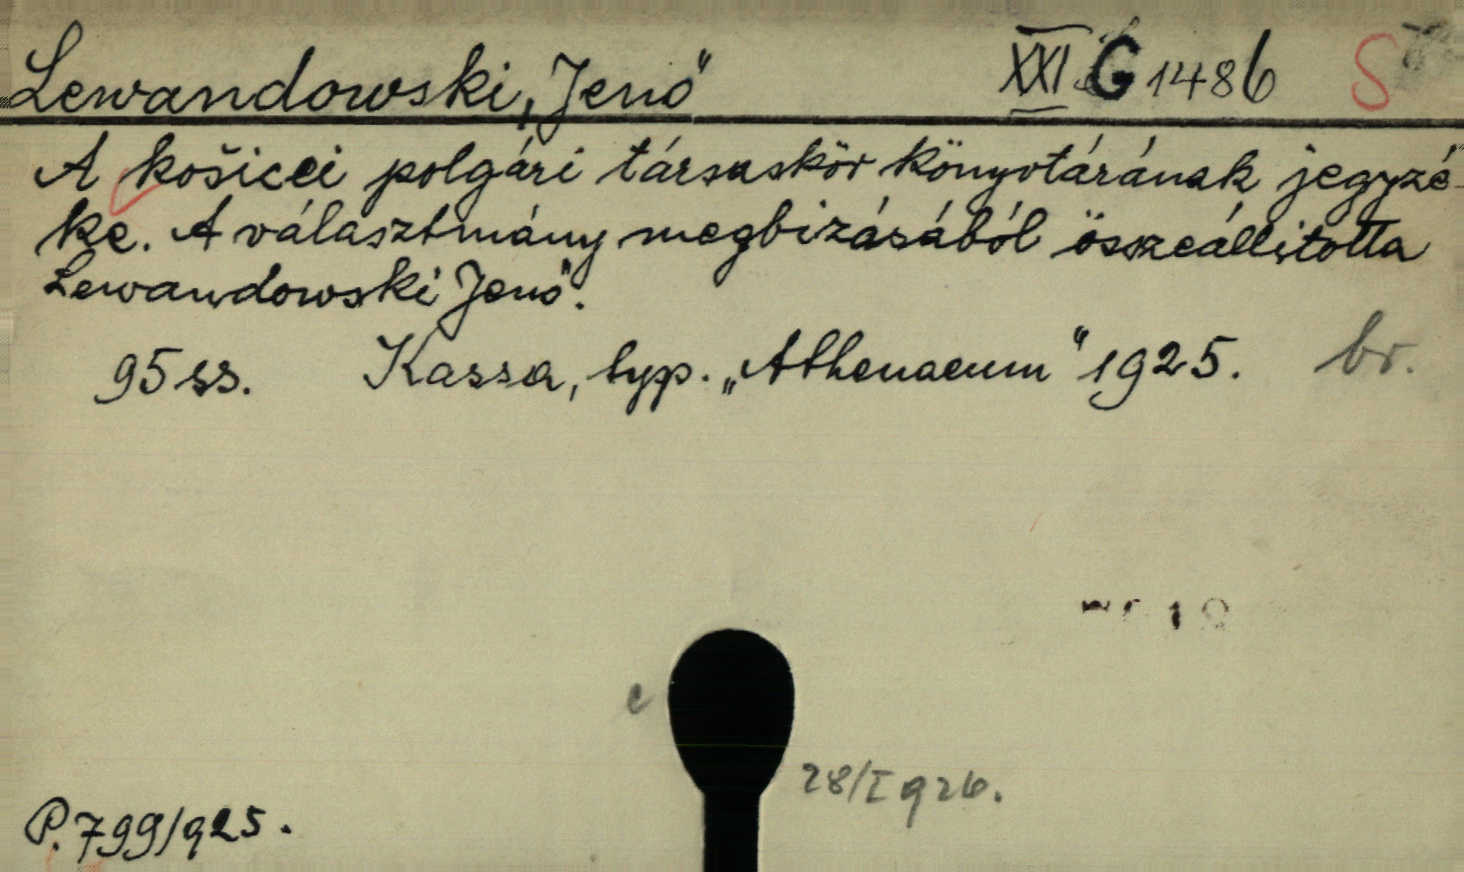 Lewandowski, Jenő XXI G 1486 S
A košicei polgári társaskör könyvtárának jegyzé-
ke. A választmány megbizásából összeállitotta
Lewandowski Jenő.
95 ss. Kassa, typ. „Athenaeum" 1925. br.
c
28/I 926.
P. 799/925.